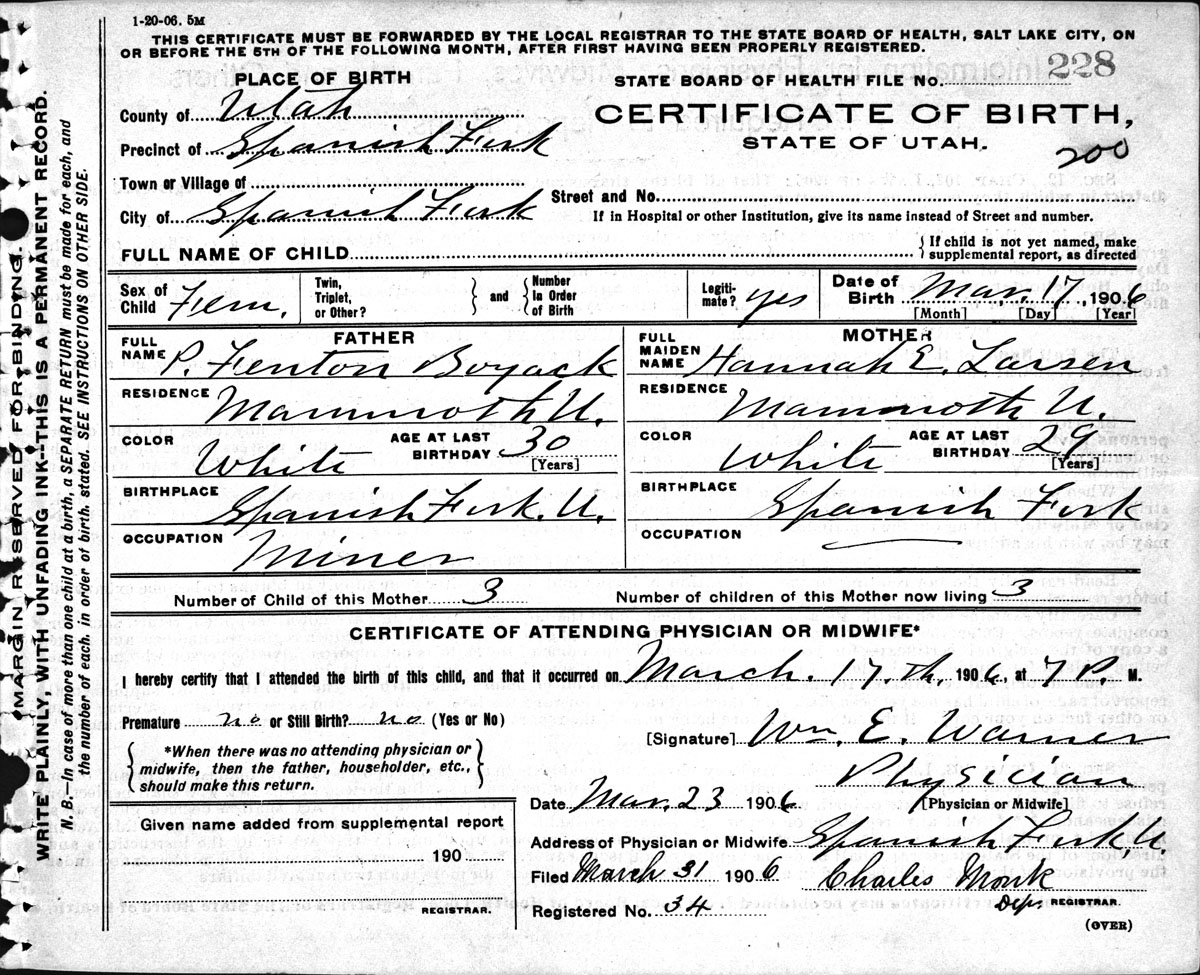 1-20-06. 5M
THIS CERTIFICATE MUST BE FORWARDED BY THE LOCAL REGISTRAR TO THE STATE BOARD OF HEALTH, SALT LAKE CITY, ON
OR BEFORE THE 5TH OF THE FOLLOWING MONTH, AFTER FIRST HAVING BEEN PROPERLY REGISTERED.
PLACE OF BIRTH
STATE BOARD OF HEALTH FILE No. 228
County of Utah
CERTIFICATE OF BIRTH,
STATE OF UTAH.
200
Precinct of Spanish Fork
Town or Village of
City of Spanish Fork
Street and No.
If in Hospital or other Institution, give its name instead of Street and number.
FULL NAME OF CHILD
{ If child is not yet named, make
supplemental report, as directed
Sex of Child Fem.
Twin, Triplet, or Other? } and { Number In Order of Birth
Legiti- mate? yes
Date of Birth Mar. 17, 1906
[Month] [Day] [Year]
FATHER
FULL NAME P. Fenton Boyack
RESIDENCE Mammoth U.
COLOR White
AGE AT LAST BIRTHDAY 30
[Years]
BIRTHPLACE Spanish Fork. U.
OCCUPATION Miner
MOTHER
FULL MAIDEN NAME Hannah E. Larsen
RESIDENCE Mammoth U.
COLOR White
AGE AT LAST BIRTHDAY 29
[Years]
BIRTHPLACE Spanish Fork
OCCUPATION
Number of Child of this Mother 3
Number of children of this Mother now living 3
CERTIFICATE OF ATTENDING PHYSICIAN OR MIDWIFE*
I hereby certify that I attended the birth of this child, and that it occurred on March. 17.th, 1906, at 7 P. M.
Premature no or Still Birth? no (Yes or No)
{ *When there was no attending physician or
midwife, then the father, householder, etc.,
should make this return. }
[Signature] Wm. E. Warner
Physician
[Physician or Midwife]
Date Mar. 23 1906
Address of Physician or Midwife Spanish Fork U.
Filed March 31 1906
Charles Monk
Dep. REGISTRAR.
Registered No. 34
(OVER)
Given name added from supplemental report
190
REGISTRAR.
[MARGIN RESERVED FOR BINDING.]
WRITE PLAINLY, WITH UNFADING INK--THIS IS A PERMANENT RECORD.
N. B.—In case of more than one child at a birth, a SEPARATE RETURN must be made for each, and
the number of each, in order of birth, stated. SEE INSTRUCTIONS ON OTHER SIDE.